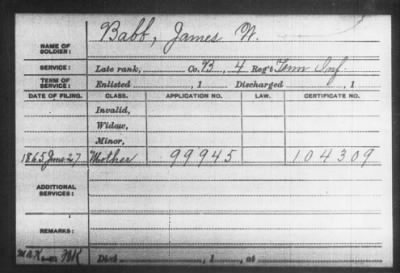 NAME OF SOLDIER: Babb, James W.
SERVICE: Late rank, Co. B, 4 Reg't Tenn Inf
TERM OF SERVICE: Enlisted , 1 Discharged , 1
DATE OF FILING. CLASS. APPLICATION NO. LAW. CERTIFICATE NO.
Invalid,
Widow,
Minor,
1865 June 27 Mother 99945 104309
ADDITIONAL SERVICES:
REMARKS:
Died , 1 , at